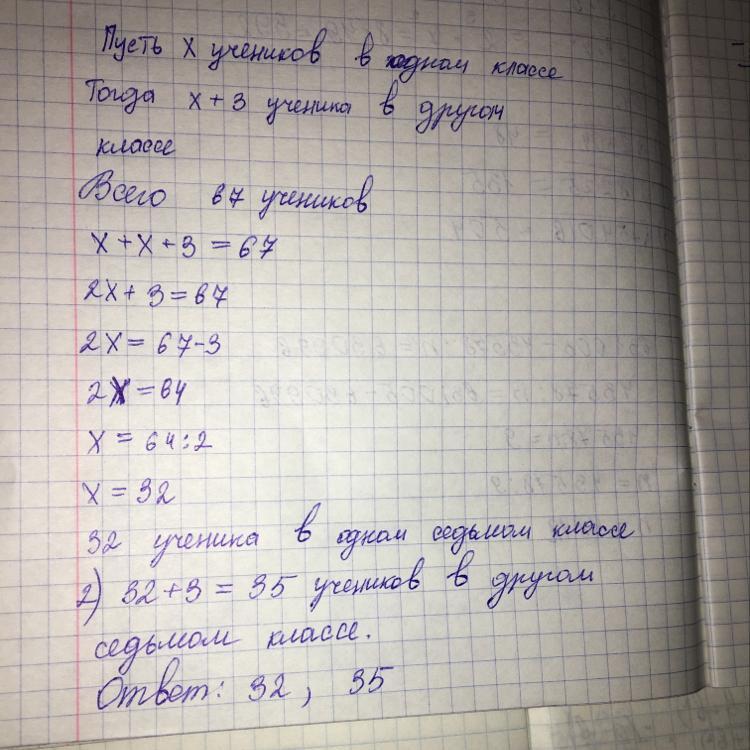 Пусть x учеников в одном классе
Тогда x + 3 ученика в другом
классе
Всего 67 учеников
x + x + 3 = 67
2x + 3 = 67
2x = 67-3
2x = 64
x = 64:2
x = 32
32 ученика в одном седьмом классе
2) 32+3 = 35 учеников в другом
седьмом классе.
Ответ: 32, 35